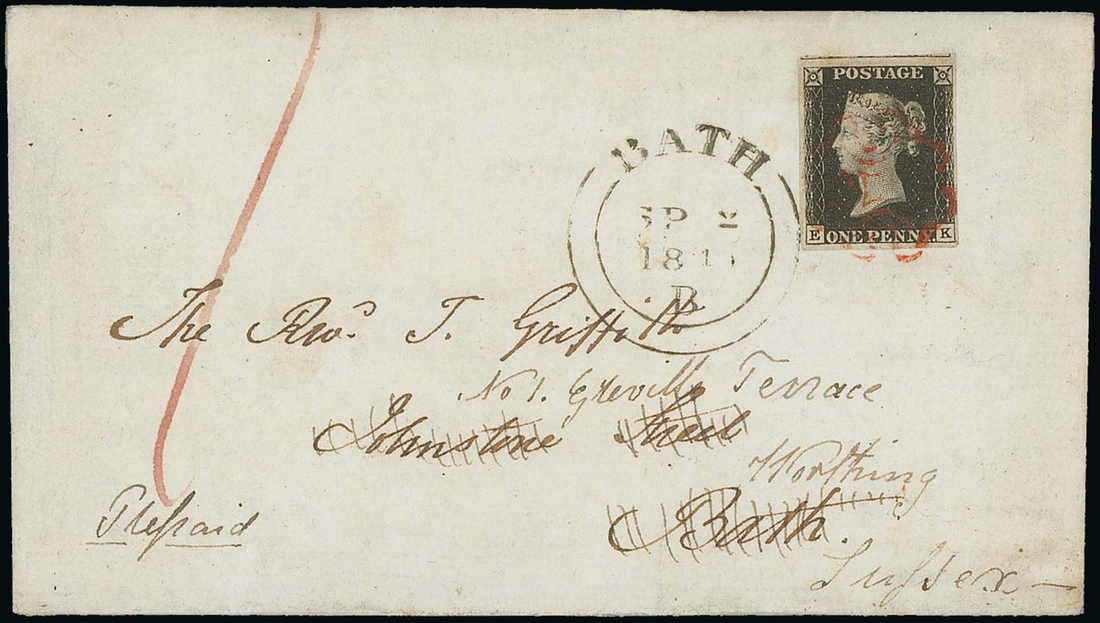 POSTAGE
E ONE PENNY K
BATH
SP
18
B
The Revd. J. Griffith
No 1. Greville Terrace
Johnstone Street
Worthing
Bath.
Prepaid
Sussex